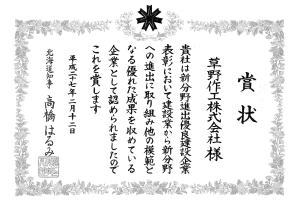 賞状
草野作工株式会社 様
貴社は新分野進出優良建設企業
表彰において建設業から新分野
への進出に取り組み他の模範と
なる優れた成果を収めている
企業として認められましたので
これを賞します
平成二十七年二月十二日
北海道知事 高橋はるみ